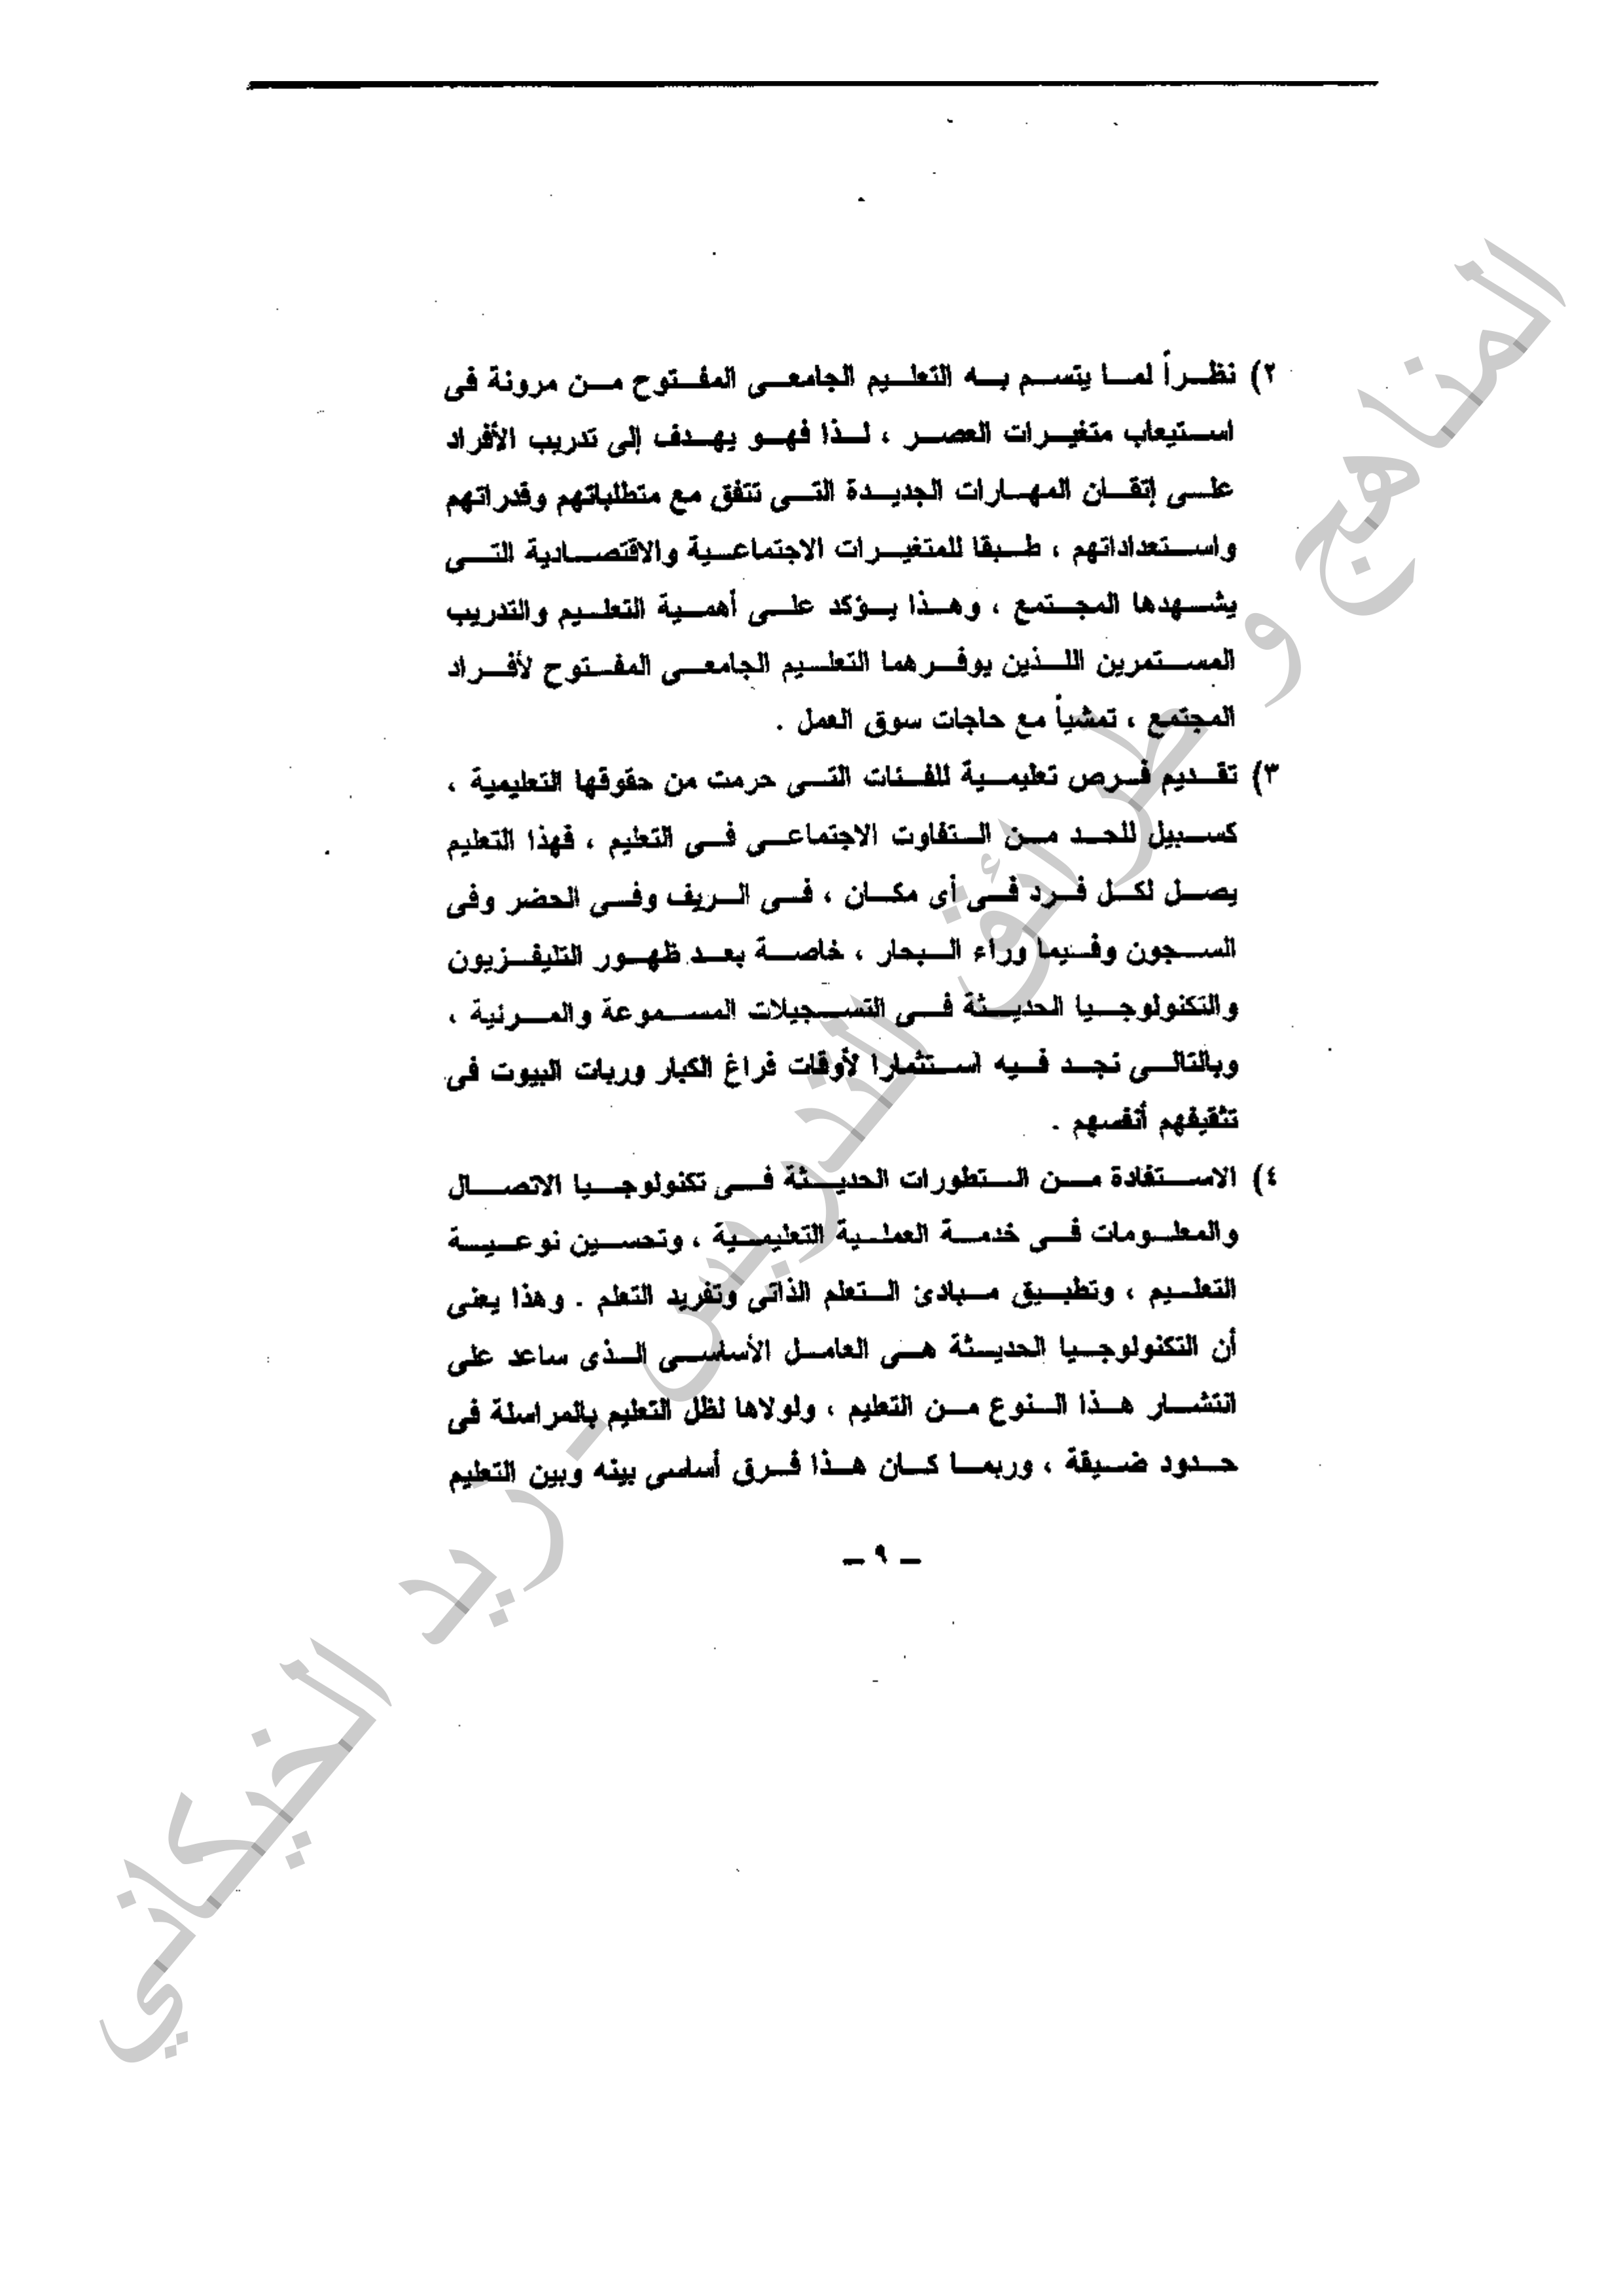 ٢) نظراً لما يتسم به التعليم الجامعى المفتوح من مرونة فى
استيعاب متغيرات العصر ، لذا فهو يهدف إلى تدريب الأفراد
على إتقان المهارات الجديدة التى تتفق مع متطلباتهم وقدراتهم
واستعداداتهم ، طبقا للمتغيرات الاجتماعية والاقتصادية التى
يشهدها المجتمع ، وهذا يؤكد على أهمية التعليم والتدريب
المستمرين اللذين يوفرهما التعليم الجامعى المفتوح لأفراد
المجتمع ، تمشياً مع حاجات سوق العمل .
٣) تقديم فرص تعليمية للفئات التى حرمت من حقوقها التعليمية ،
كسبيل للحد من التفاوت الاجتماعى فى التعليم ، فهذا التعليم
يصل لكل فرد فى أى مكان ، فى الريف وفى الحضر وفى
السجون وفيما وراء البحار ، خاصة بعد ظهور التليفزيون
والتكنولوجيا الحديثة فى التسجيلات المسموعة والمرئية ،
وبالتالى نجد فيه استثمارا لأوقات فراغ الكبار وربات البيوت فى
تثقيفهم أنفسهم .
٤) الاستفادة من التطورات الحديثة فى تكنولوجيا الاتصال
والمعلومات فى خدمة العملية التعليمية ، وتحسين نوعية
التعليم ، وتطبيق مبادئ التعلم الذاتى وتفريد التعلم . وهذا يعنى
أن التكنولوجيا الحديثة هى العامل الأساسى الذى ساعد على
انتشار هذا النوع من التعليم ، ولولاها لظل التعليم بالمراسلة فى
حدود ضيقة ، وربما كان هذا فرق أساسى بينه وبين التعليم
– ٩ –
المناهج و طرائق التدريس - زيد الخيكاني